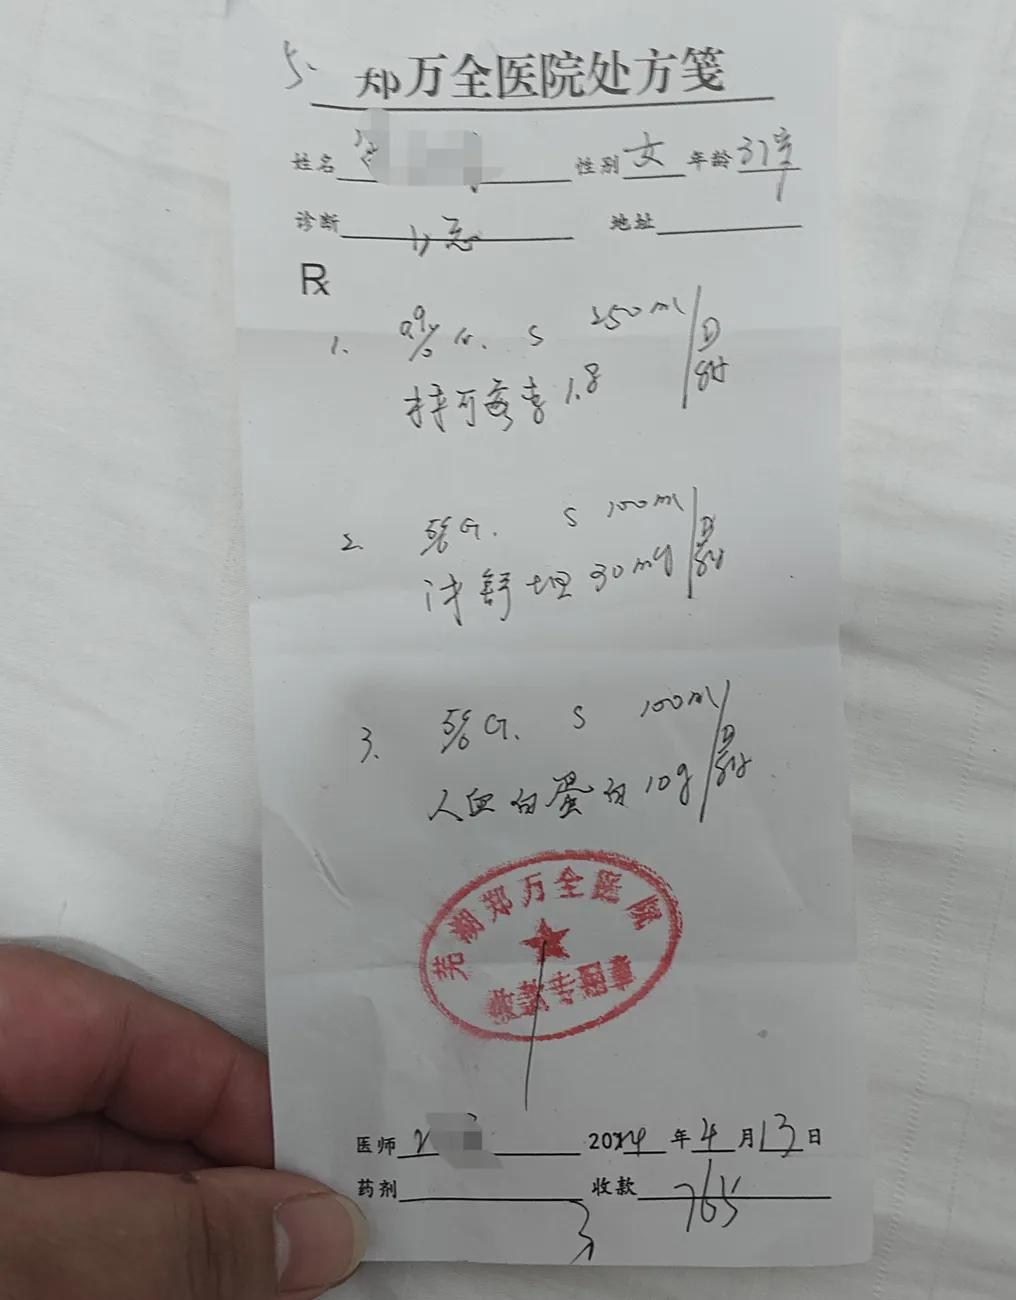 5.
郑万全医院处方笺
姓名 性别 女 年龄 37岁
诊断 地址
Rx
1. 0.9% N. S 250ml / D
1.8
2. 5% G. S 100ml / D
舒坦 30mg
3. 5% G. S 100ml / D
人血白蛋白 10g
芜湖郑万全医院
收款专用章
医师 2024年4月13日
药剂 收款 765